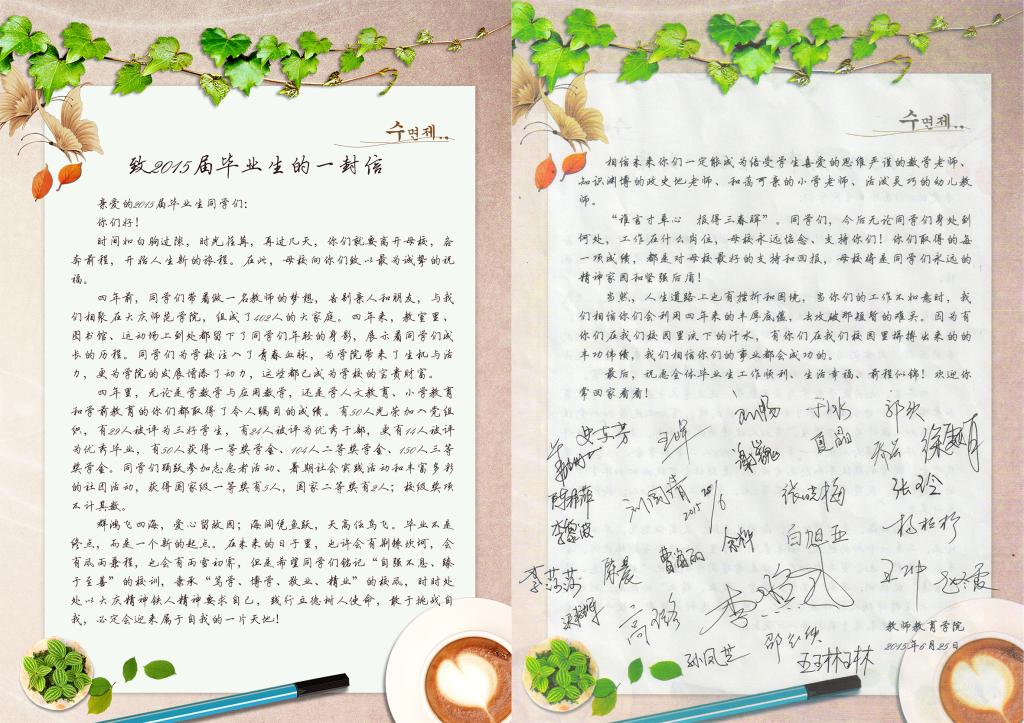 수면제..
致2015届毕业生的一封信
亲爱的2015届毕业生同学们：
你们好！
时间如白驹过隙，时光荏苒，再过几天，你们就要离开母校，各
奔前程，开始人生新的旅程。在此，母校向你们致以最为诚挚的祝
福。
四年前，同学们带着做一名教师的梦想，告别亲人和朋友，与我
们相聚在大庆师范学院，组成了402人的大家庭。四年来，教室里、
图书馆、运动场上到处都留下了同学们年轻的身影，展示着同学们成
长的历程。同学们为学校注入了青春血脉，为学院带来了生机与活
力，更为学院的发展增添了动力，这些都已成为学校的宝贵财富。
四年里，无论是学数学与应用数学，还是学人文教育、小学教育
和学前教育的你们都取得了令人瞩目的成绩。有50人光荣加入党组
织，有29人被评为三好学生，有24人被评为优秀干部，更有14人被评
为优秀毕业，有50人获得一等奖学金、104人二等奖学金、150人三等
奖学金。同学们踊跃参加志愿者活动、暑期社会实践活动和丰富多彩
的社团活动，获得国家级一等奖有5人，国家二等奖有2人；校级奖项
不计其数。
群鸿飞四海，爱心留故园；海阔凭鱼跃，天高任鸟飞。毕业不是
终点，而是一个新的起点。在未来的日子里，也许会有荆棘坎坷，会
有风雨兼程，也会有雨雪初霁，但是希望同学们铭记“自强不息、臻
于至善”的校训，秉承“笃学、博学、敬业、精业”的校风，时时处
处以大庆精神铁人精神要求自己，践行立德树人使命，敢于挑战自
我，必定会迎来属于自我的一片天地！
수면제..
相信未来你们一定能成为倍受学生喜爱的思维严谨的数学老师、
知识渊博的政史地老师、和蔼可亲的小学老师、活泼灵巧的幼儿教
师。
“谁言寸草心 报得三春晖”。同学们，今后无论同学们身处到
何处，工作在什么岗位，母校永远惦念、支持你们！你们取得的每
一项成绩，都是对母校最好的支持和回报，母校将是同学们永远的
精神家园和坚强后盾！
当然，人生道路上也有挫折和困境，当你们的工作不如意时，我
们相信你们会利用四年来的丰厚底蕴，去攻破那短暂的难关。因为有
你们在我们校园里流下的汗水，有你们在我们校园里拼搏出来的的
丰功伟绩，我们相信你们的事业都会成功的。
最后，祝愿全体毕业生工作顺利、生活幸福、前程似锦！欢迎你
常回家看看！
刘国清
2015 25/6
张晓梅
张玲
李莎莎
陈晨
白旭亚
孙凤芝
教师教育学院
2015年6月25日